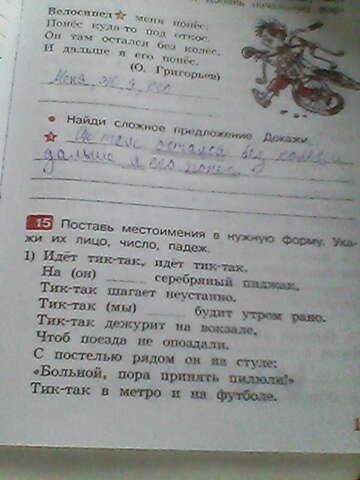 Велосипед меня понёс.
Понёс куда-то под откос.
Он там остался без колёс.
И дальше я его понёс.
(О. Григорьев)
Найди сложное предложение. Докажи.
Он там остался без
дальше я его понёс.
15 Поставь местоимения в нужную форму. Ука-
жи их лицо, число, падеж.
1) Идёт тик-так, идёт тик-так.
На (он) серебряный пиджак.
Тик-так шагает неустанно.
Тик-так (мы) будит утром рано.
Тик-так дежурит на вокзале,
Чтоб поезда не опоздали.
С постелью рядом он на стуле:
«Больной, пора принять пилюли!»
Тик-так в метро и на футболе.